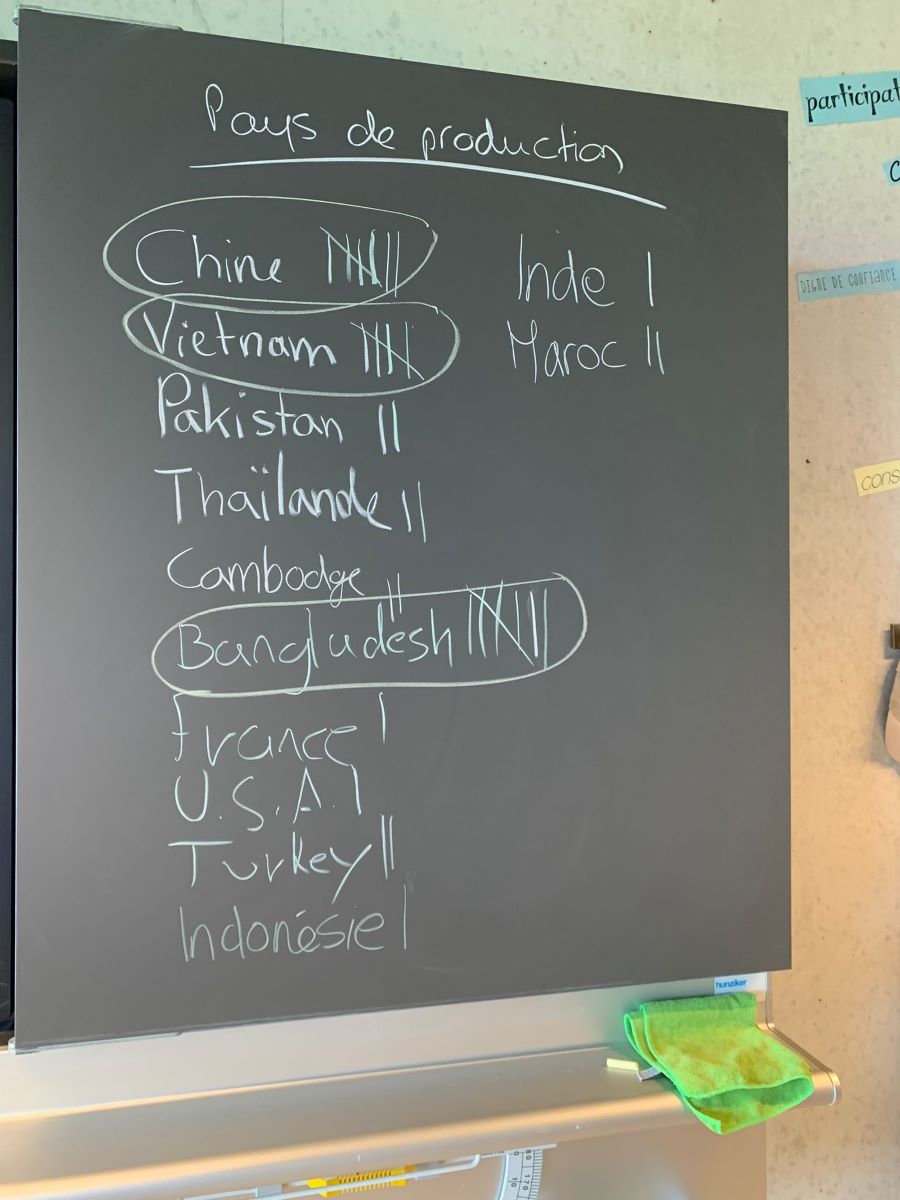 Pays de production
Chine
Vietnam
Pakistan ||
Thaïlande ||
Cambodge ||
Bangladesh
France |
U.S.A. |
Turkey ||
Indonésie |
Inde |
Maroc ||
participat
DIGNE DE CONFIANCE
cons
hunziker